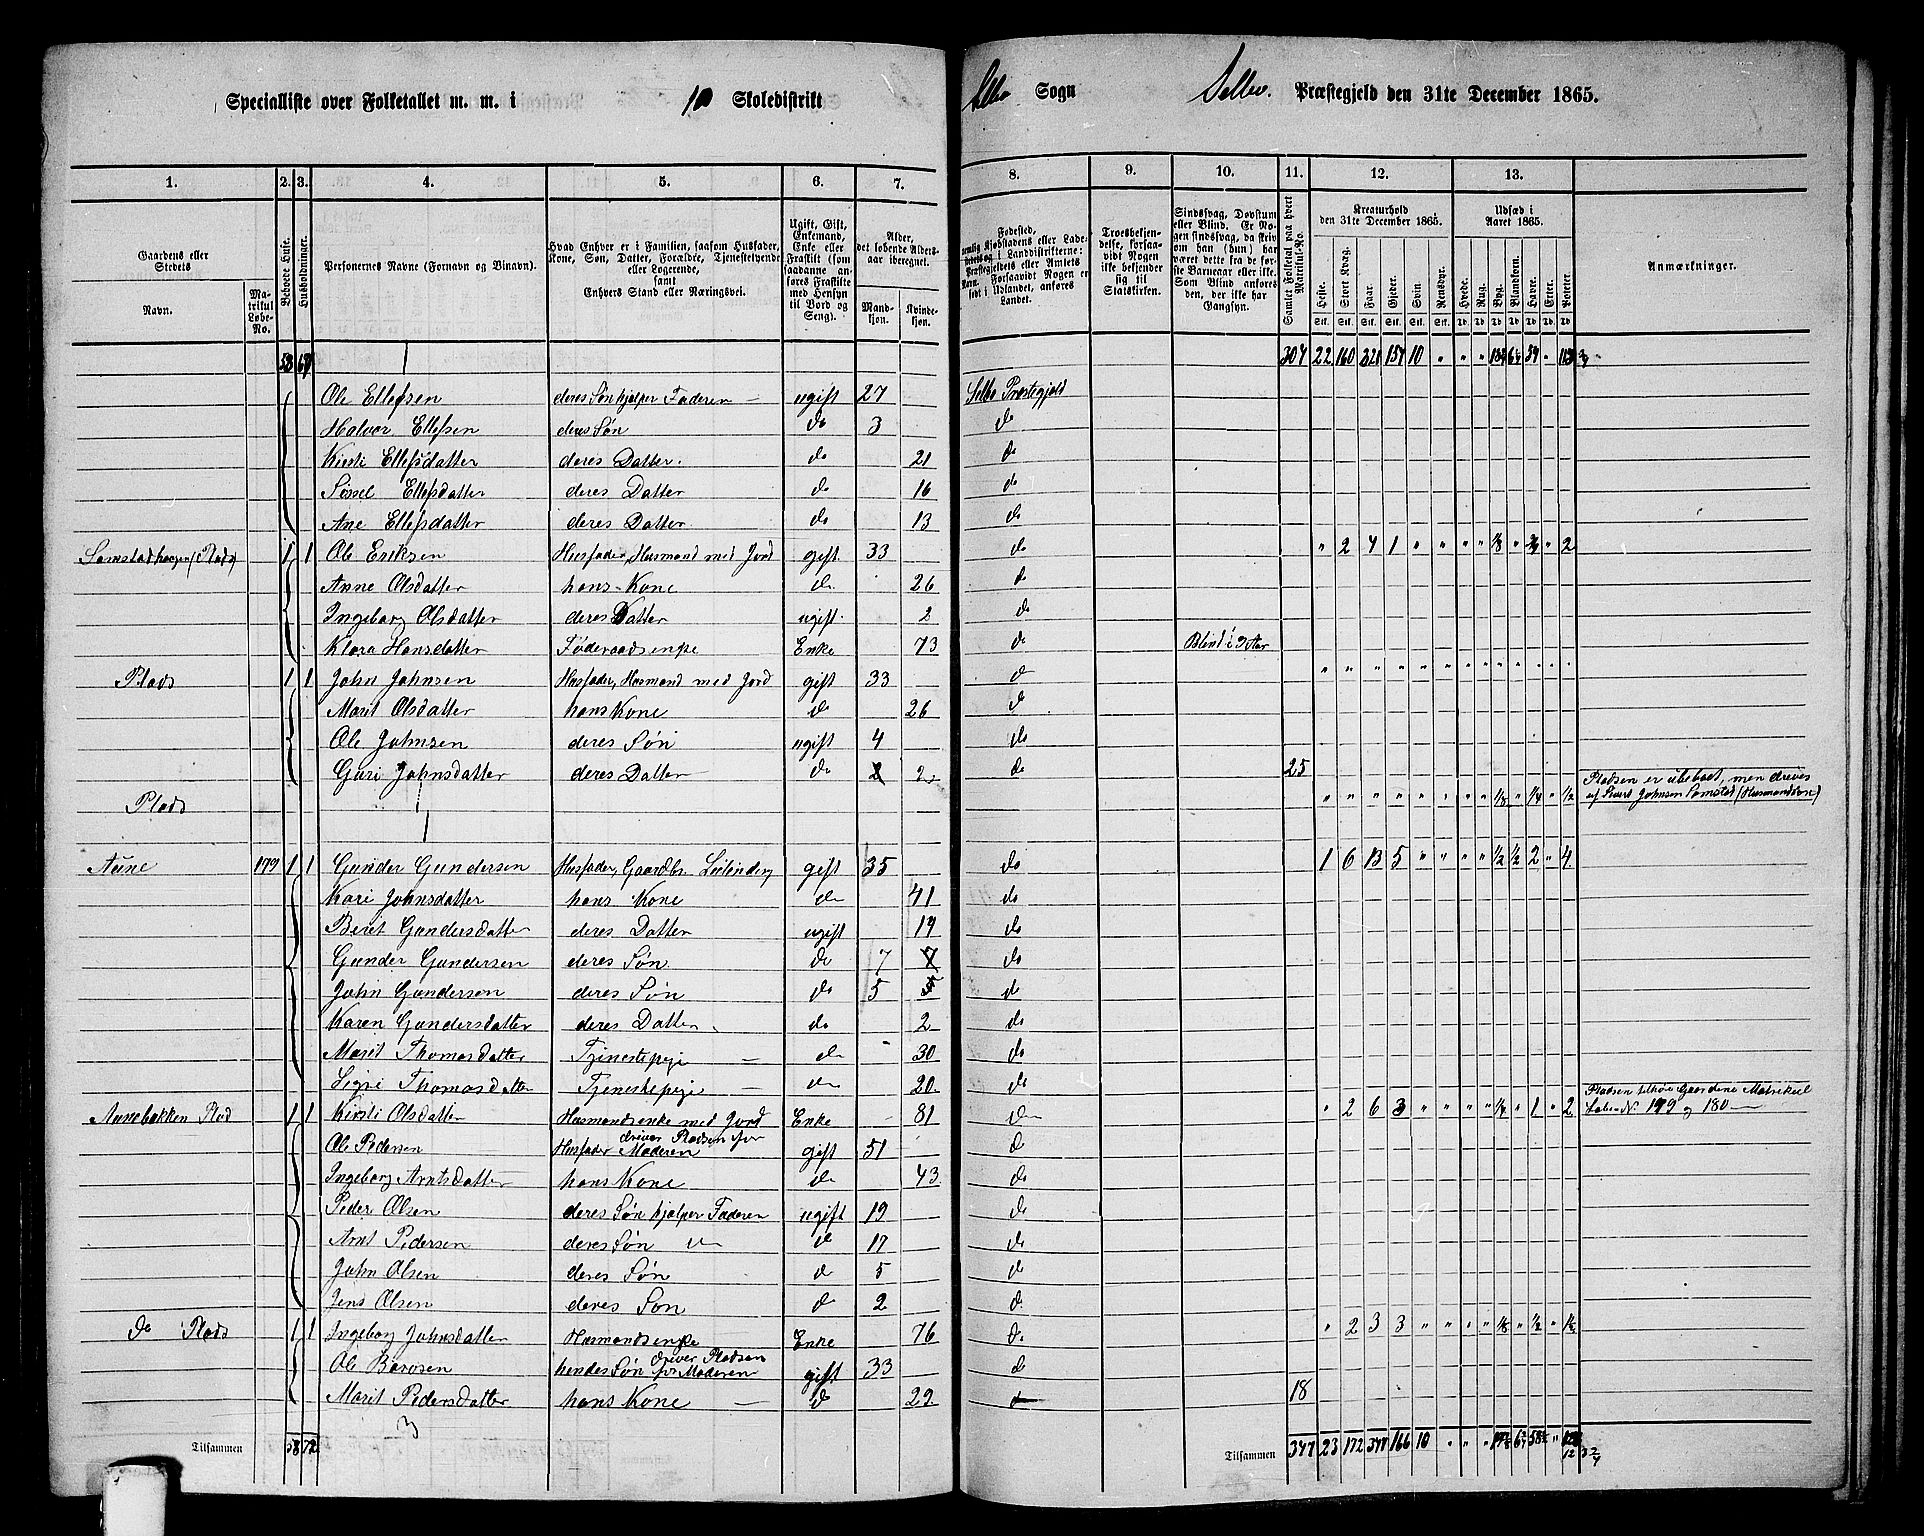 Specialliste over Folketallet m. m. i 10 Skoledistrikt Selbo Sogn Selbo Præstegjeld den 31te December 1865.
1. 2. 3. 4. 5. 6. 7. 8. 9. 10. 11. 12. 13.
Gaardens eller Stedets Navn. Matrikul Løbe-No.
Beboede Huse. Husholdninger.
Personernes Navne (Fornavn og Tilnavn).
Hvad Enhver er i Familien, saasom Husfader, Kone, Søn, Datter, Forældre, Tjenestetyende eller Logerende, samt Enhvers Stand eller Næringsvei.
Ugift, Gift, Enkemand, Enke eller Fraskilt
Alder, det løbende Alders-aar iberegnet. Mand-kjøn. Kvinde-kjøn.
Fødested,
Troesbekjendelse, forsaavidt Nogen ikke bekjender sig til Statskirken.
Sindssvag, Døvstum eller Blind.
Samlet Folketal paa hvert Matrikul-No.
Kreaturhold den 31te December 1865.
Heste. Stort Kvæg. Faar. Gjeder. Svin. Rensdyr.
Udsæd i Aaret 1865.
Hvede. Rug. Byg. Blandkorn. Havre. Erter. Poteter.
Anmærkninger.
307 22 160 321 157 10
Ole Ellefsen deres Søn hjelper Faderen ugift 27 Selbo Præstegjeld
Halvor Ellefsen deres Søn do 3 do
Kirsti Ellefsdatter deres Datter. do 21 do
Sissel Ellefsdatter deres Datter do 16 do
Ane Ellefsdatter deres Datter do 13 do
Samstadhaugen (Plads) 1 1 Ole Eriksen Husfader, Husmand med Jord gift 33 do " 2 4 1 " " " " 1/8 " 3/4 " 2
Anne Olsdatter hans Kone do 26 do
Ingeborg Olsdatter deres Datter ugift 2 do
Klara Hansdatter Føderaadsenke Enke 73 do Blind i 3 Aar
Plads 1 1 John Johnsen Husfader, Husmand med Jord gift 33 do
Marit Olsdatter hans Kone do 26 do
Ole Johnsen deres Søn ugift 4 do
Guri Johnsdatter deres Datter do 2 do 25
Plads " " " " " " " " 1/8 " 1/4 " 1/2 Pladsen er ubeboet, men drives af Sivert Johnsen Samstad (Husmandssøn)
Aune 179 1 1 Gunder Gundersen Husfader, Gaardbr. Leilending gift 35 do 1 6 13 5 " " " " 1/2 1/2 2 " 4
Kari Johnsdatter hans Kone do 41 do
Berit Gundersdatter deres Datter ugift 19 do
Gunder Gundersen deres Søn do 7 do
John Gundersen deres Søn do 5 do
Karen Gundersdatter deres Datter do 2 do
Marit Thomasdatter Tjenestepige do 30 do
Sigri Thomasdatter Tjenestepige do 20 do
Aunebakken Plad 1 1 Kirsti Olsdatter Husmandsenke med Jord Enke 81 do " 2 6 3 " " " " 1/8 " 1 " 2 Pladsen tilhør Gaardene Matrikul Løbe-No 179 og 180
Ole Pedersen Husfader driver Pladsen for Moderen gift 51 do
Ingeborg Arntsdatter hans Kone do 43 do
Peder Olsen deres Søn hjelper Faderen ugift 19 do
Arnt Pedersen deres Søn do do 17 do
John Olsen deres Søn do 5 do
Jens Olsen deres Søn do 2 do
do Plads 1 1 Ingeborg Johnsdatter Husmandsenke Enke 76 do " 2 3 3 " " " " 1/8 " 1/2 " 1 1/2
Ole Baarsen hendes Søn driver Pladsen for Moderen gift 33 do
Marit Pedersdatter hans Kone do 29 do 18
Tilsammen 58 72 Tilsammen 347 23 172 347 166 10